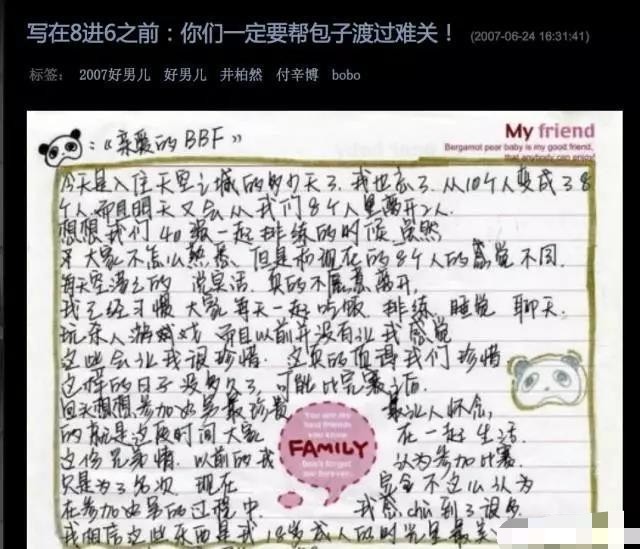 写在8进6之前：你们一定要帮包子渡过难关！ (2007-06-24 16:31:41)
标签： 2007好男儿 好男儿 井柏然 付辛博 bobo
My friend
Bergamot pear baby is my good friend,
that anybody can enjoy!
：《亲爱的BBF》
今天是入住天空之城的第多少天了,我也忘了.从10个人变成了8
个人.而且明天又会从我们8个人里离开2人.
想想我们40强一起排练的时候 虽然
大家不怎么熟悉,但是和现在的8个人的感觉不同.
每天空荡荡的 说实话,真的不愿意离开.
我已经习惯大家每天一起吃饭 排练 睡觉 聊天.
玩杀人游戏 而且以前并没有让我感觉
这些会让我很珍惜. 这真的值得我们珍惜
这样的日子没多久了,可能比完赛之后.
回头想想,参加好男最珍贵 最让人怀念,
的就是这段时间大家 在一起生活.
这份兄弟情.以前的我 认为参加比赛
只是为了名次 现在 完全不这么认为
在参加好男的过程中 我感chu到了很多
我相信这些东西是我18岁成人的时光里最美
You are my
best friends
you know
FAMILY
Don't forget
me forever...